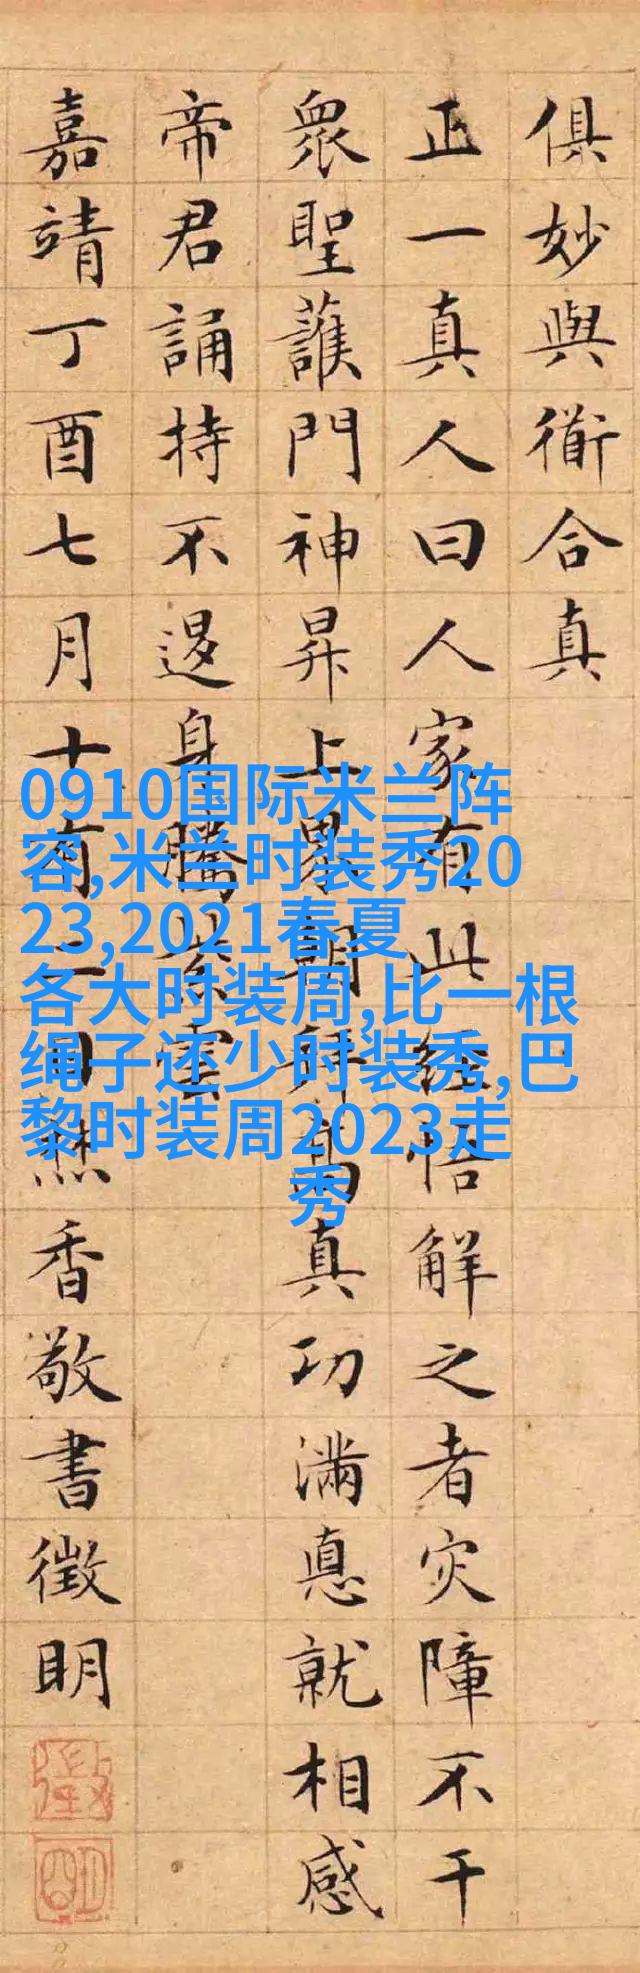 俱妙與衜合真
正一真人曰人家有此經悟解之者灾障不干
衆聖護門神昇上界朝拜高真功滿悳就相感
帝君誦持不退身騰紫雲
嘉靖丁酉七月十有二日香敬書徵明
徵
明
0910国际米兰阵
容,米兰时装秀20
23,2021春夏
各大时装周,比一根
绳子还少时装秀,巴
黎时装周2023走
秀